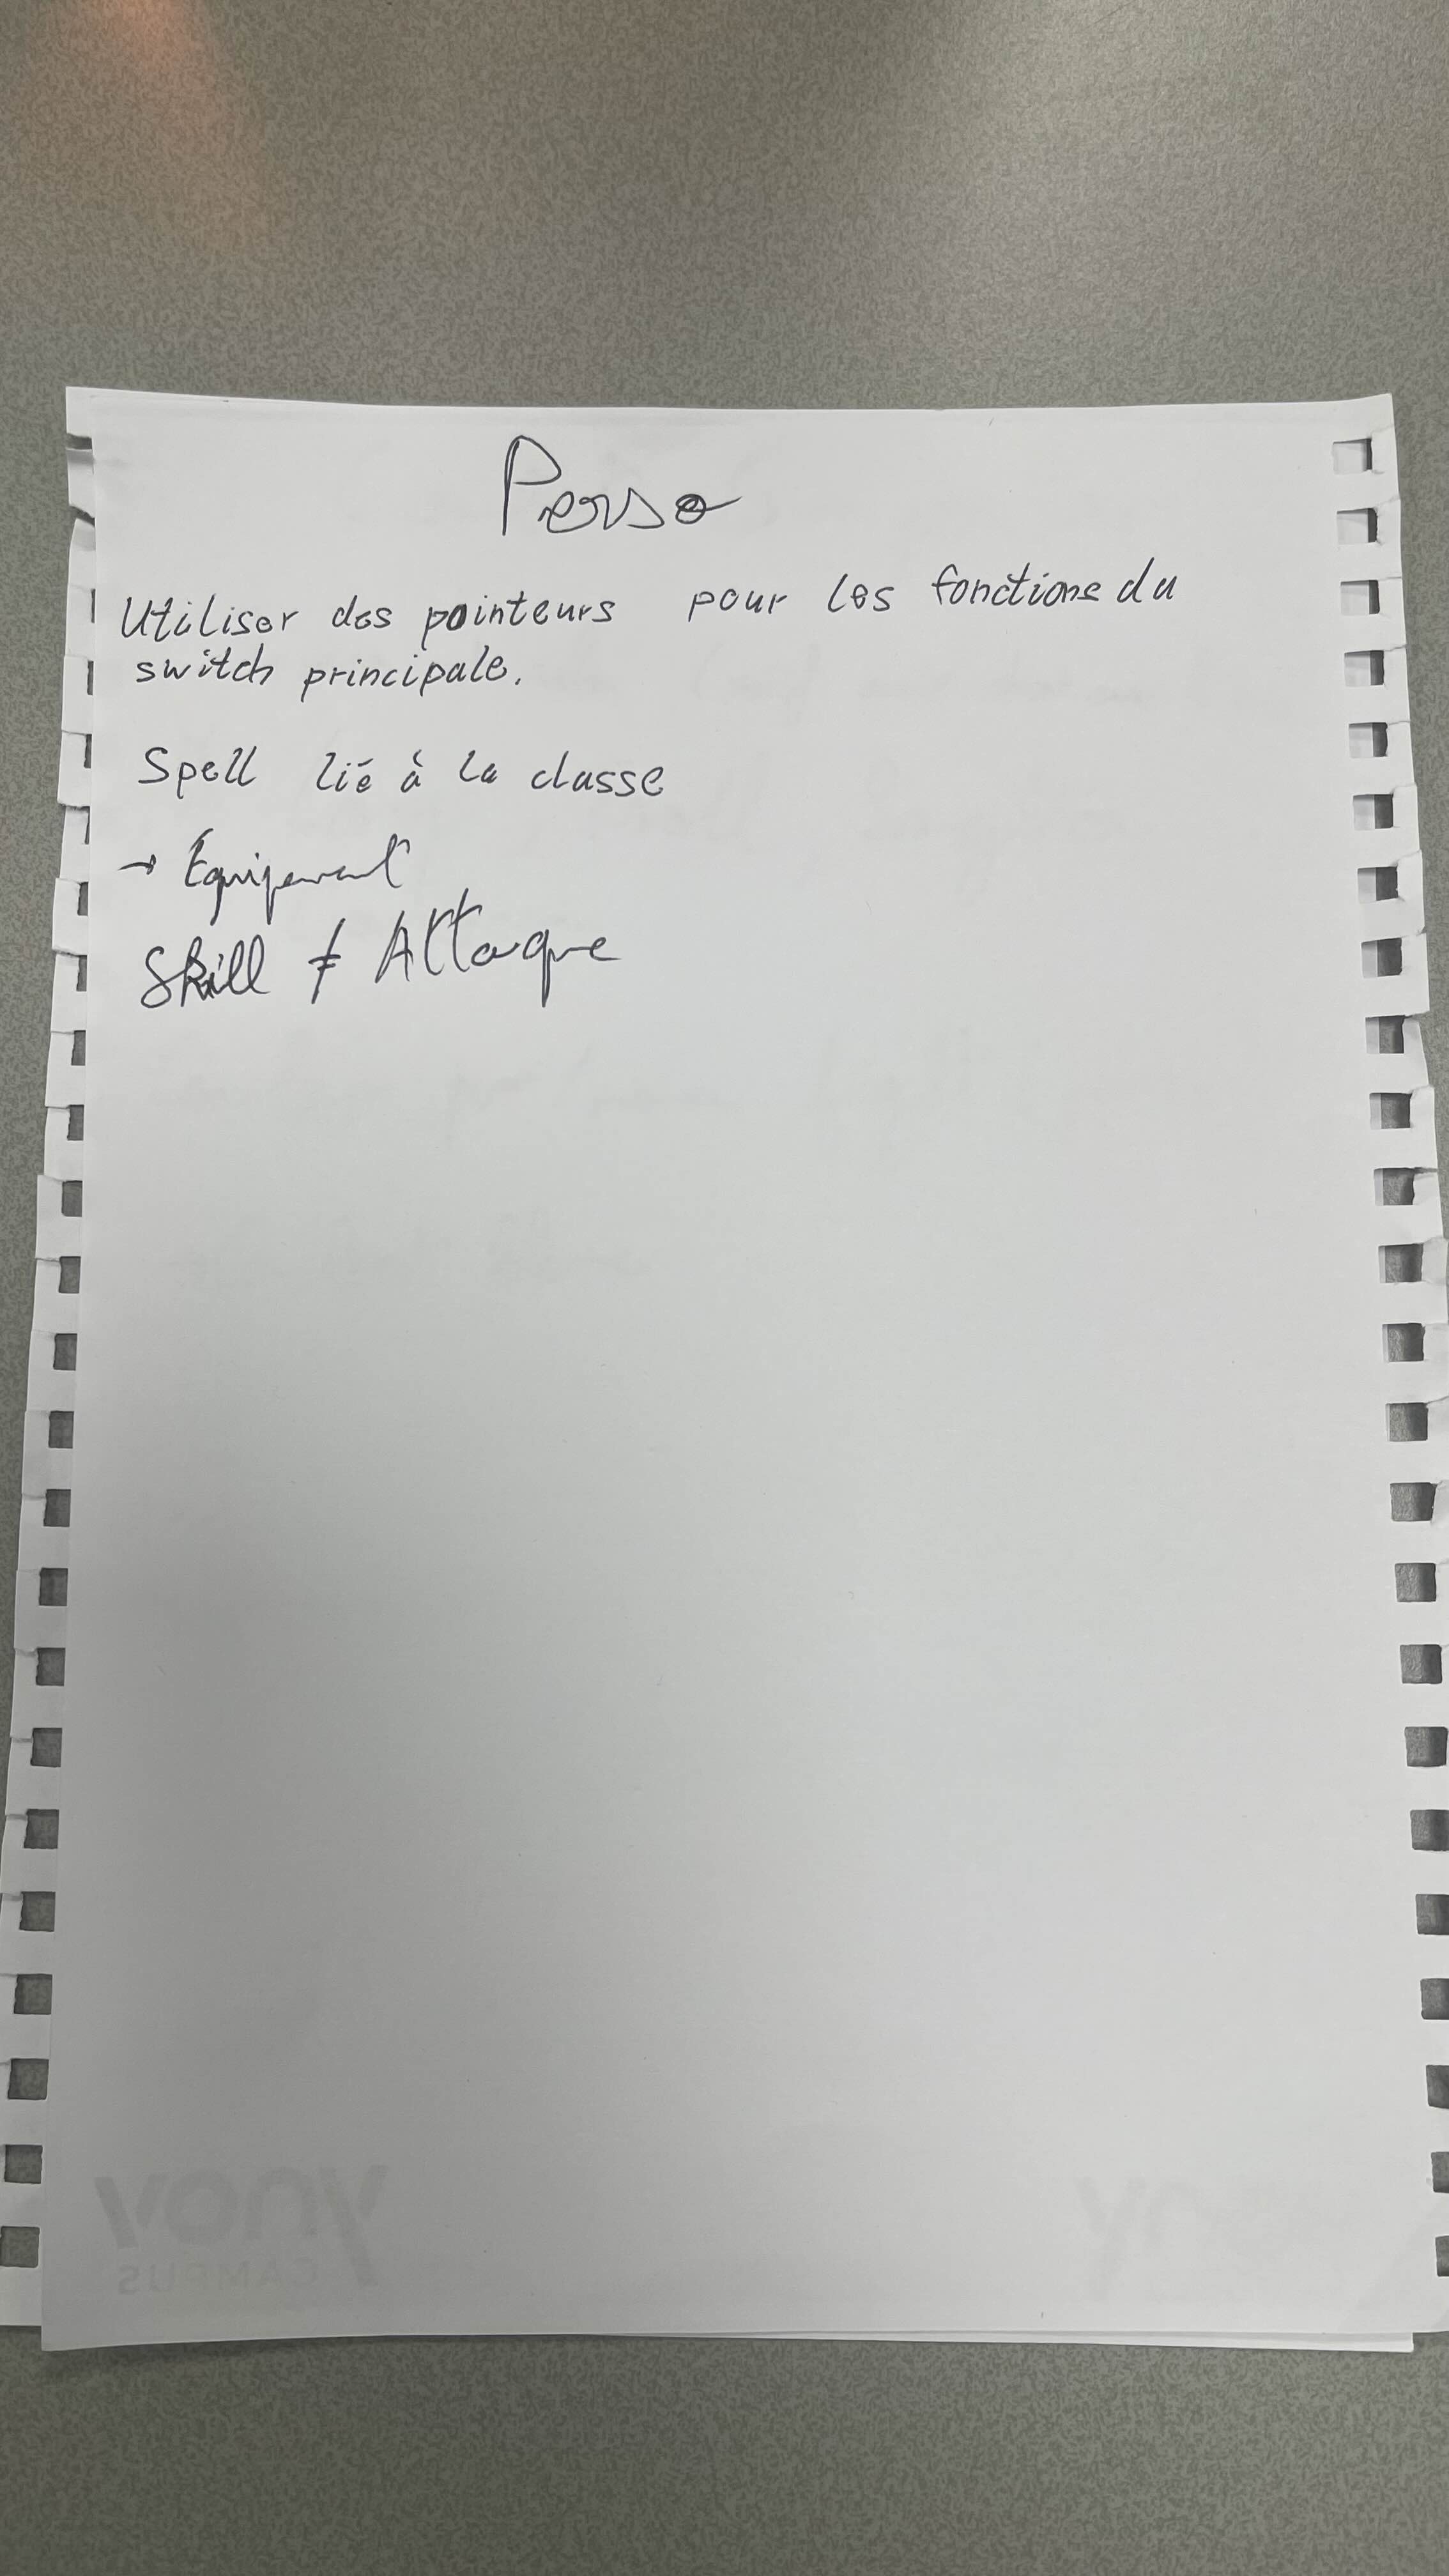 Perso
Utiliser des pointeurs pour les fonctions du
switch principale.
Spell lié à la classe
→ Équipement
Skill ≠ Attaque
ynov
CAMPUS